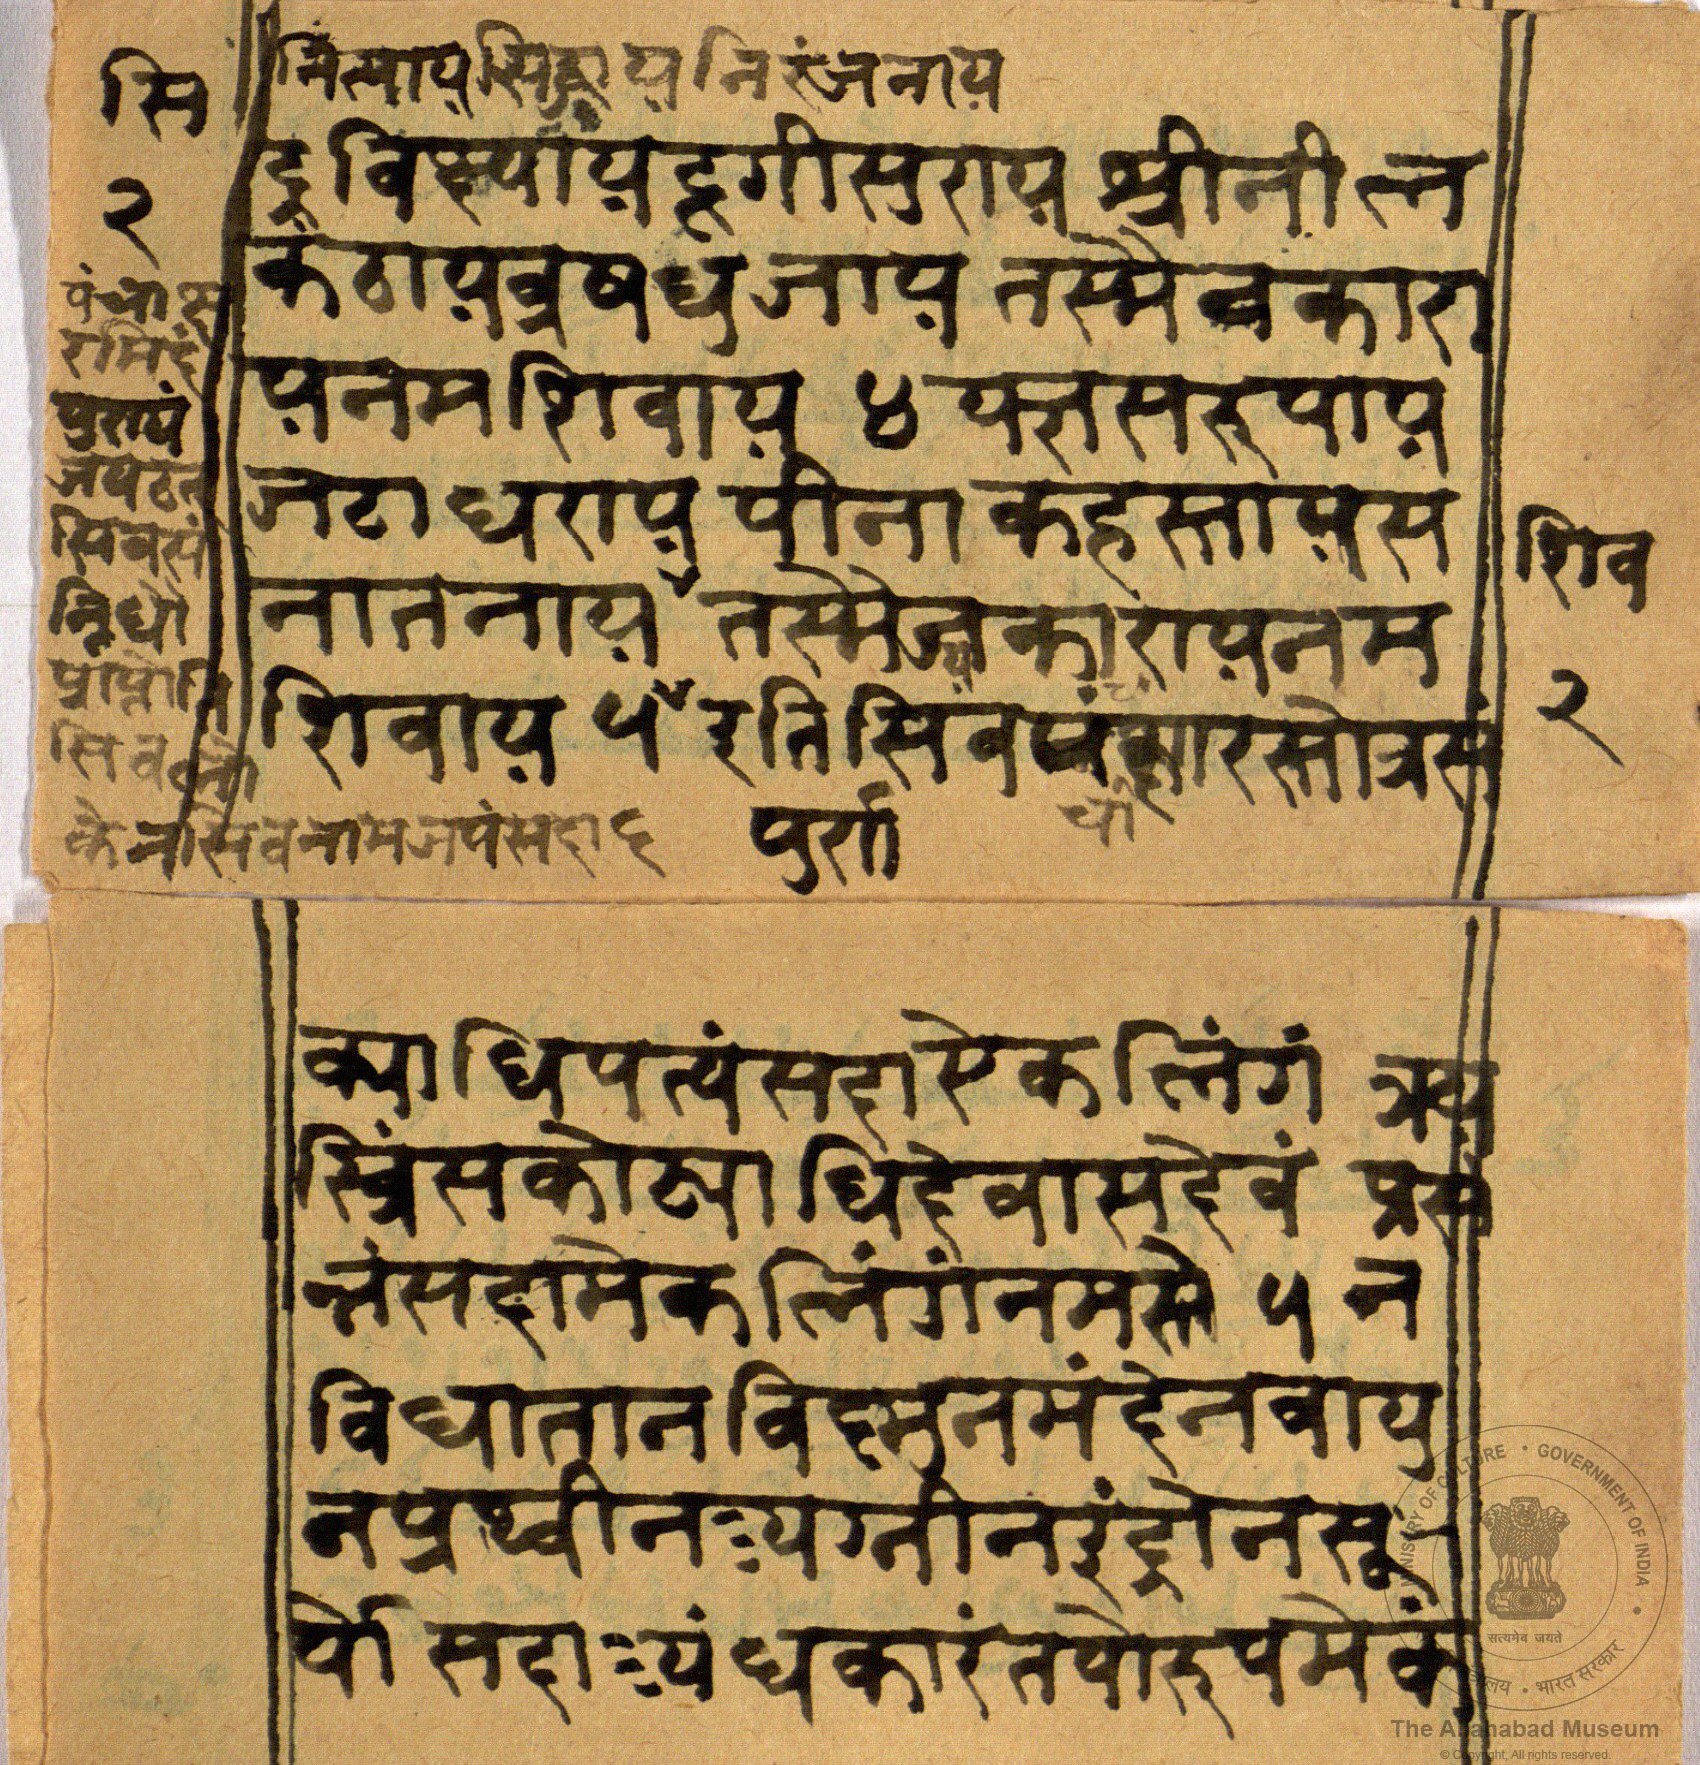 नित्याय सिद्धाय निरंजनाय
सि
२
दू विस्याय दूगीसुराय श्रीनील
कंठाय व्रषधजाय तस्मै वकारा
य नम शिवाय ४ यज्ञसरुपाय
जटाधराय पीनाकहस्ताय स
नातनाय तस्मै कारायनम
शिवाय ५ इति सिव स्तोत्र सं
पुर्ण
पंचाक्ष
रमिदं
पुरायं
जपठत
सिवसं
निधौ
प्राप्नोति
सिव
सिवनामजपंसदा ६
शिव
२
क्याधिपत्यं सदा ऐकलिंगं
कोट्याधिदेवासदेवं प्रसं
न्नं सदा मेकलिंगं नमस्ते ५ न
विधाता न विस्नु न मंदे न वायु
न प्रथ्वी न अग्नी न इंद्रो न सू
र्यो सदा अंधकारं तपोरुपमेकं
MINISTRY OF CULTURE • GOVERNMENT OF INDIA •
सत्यमेव जयते
भारत सरकार
The Allahabad Museum
© Copyright, All rights reserved.